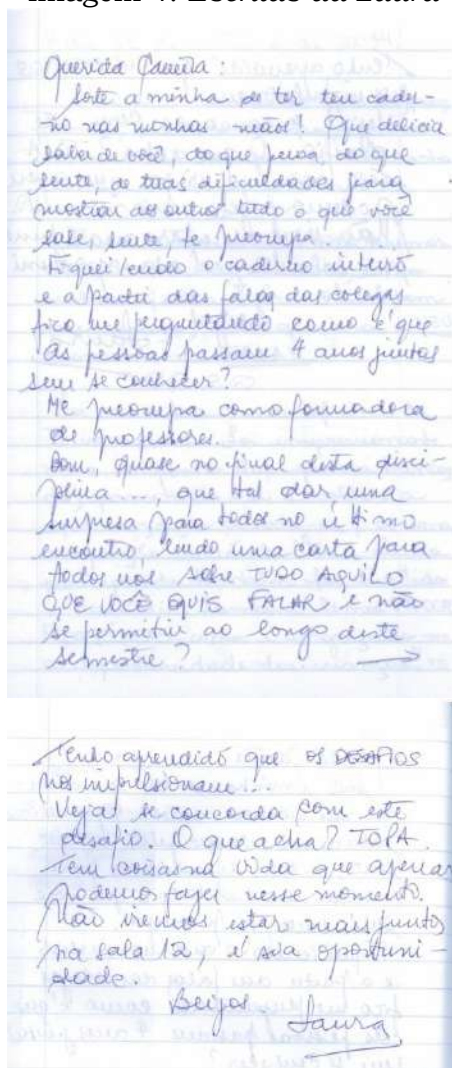 Imagem 4: Escritas da Laura
Querida Camila:
Sorte a minha de ter teu cader-
no nas minhas mãos! Que delícia
saber de você, do que pensa, do que
sente, de tuas dificuldades para
mostrar aos outros tudo o que você
sabe, sente, te preocupa.
Fiquei lendo o caderno inteiro
e a partir das falas das colegas
fico me perguntando como é que
as pessoas passam 4 anos juntas
sem se conhecer?
Me preocupa como formadora
de professores.
Bom, quase no final desta disci-
plina..., que tal dar uma
surpresa para todos no último
encontro, lendo uma carta para
todos nós sobre TUDO AQUILO
QUE VOCÊ QUIS FALAR e não
se permitiu ao longo deste
semestre?
Tenho aprendido que os DESAFIOS
nos impulsionam...
Veja se concorda com este
desafio. O que acha? TOPA.
Tem coisas na vida que apenas
podemos fazer nesse momento.
Não iremos estar mais juntos
na sala 12, é sua oportuni-
dade.
Beijos.
Laura